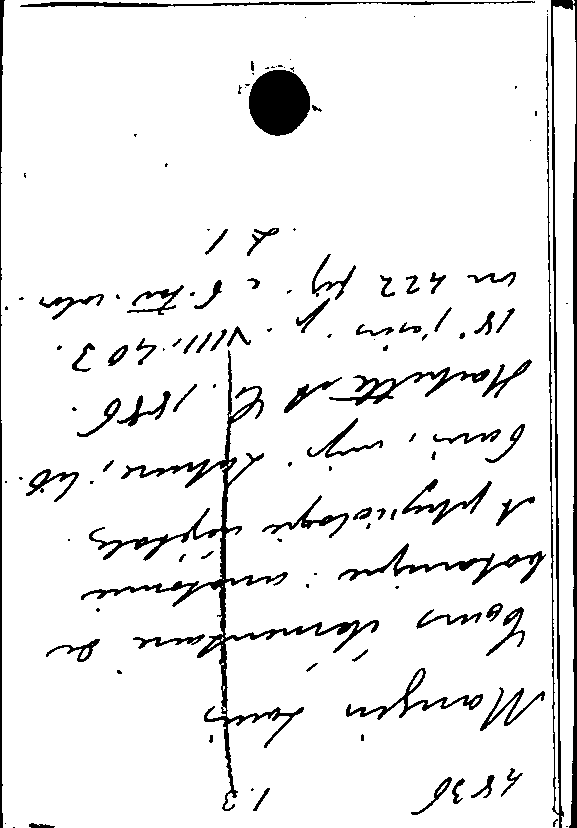 4836 1.3
Mangin Louis
Cours élémentaire de
botanique: anatomie
et physiologie végétales
Paris, imp. Lahure; lib
Hachette et C. 1886.
18° jésus. p. VIII, 403.
con 422 fig. e 6. tav. color.
L 1